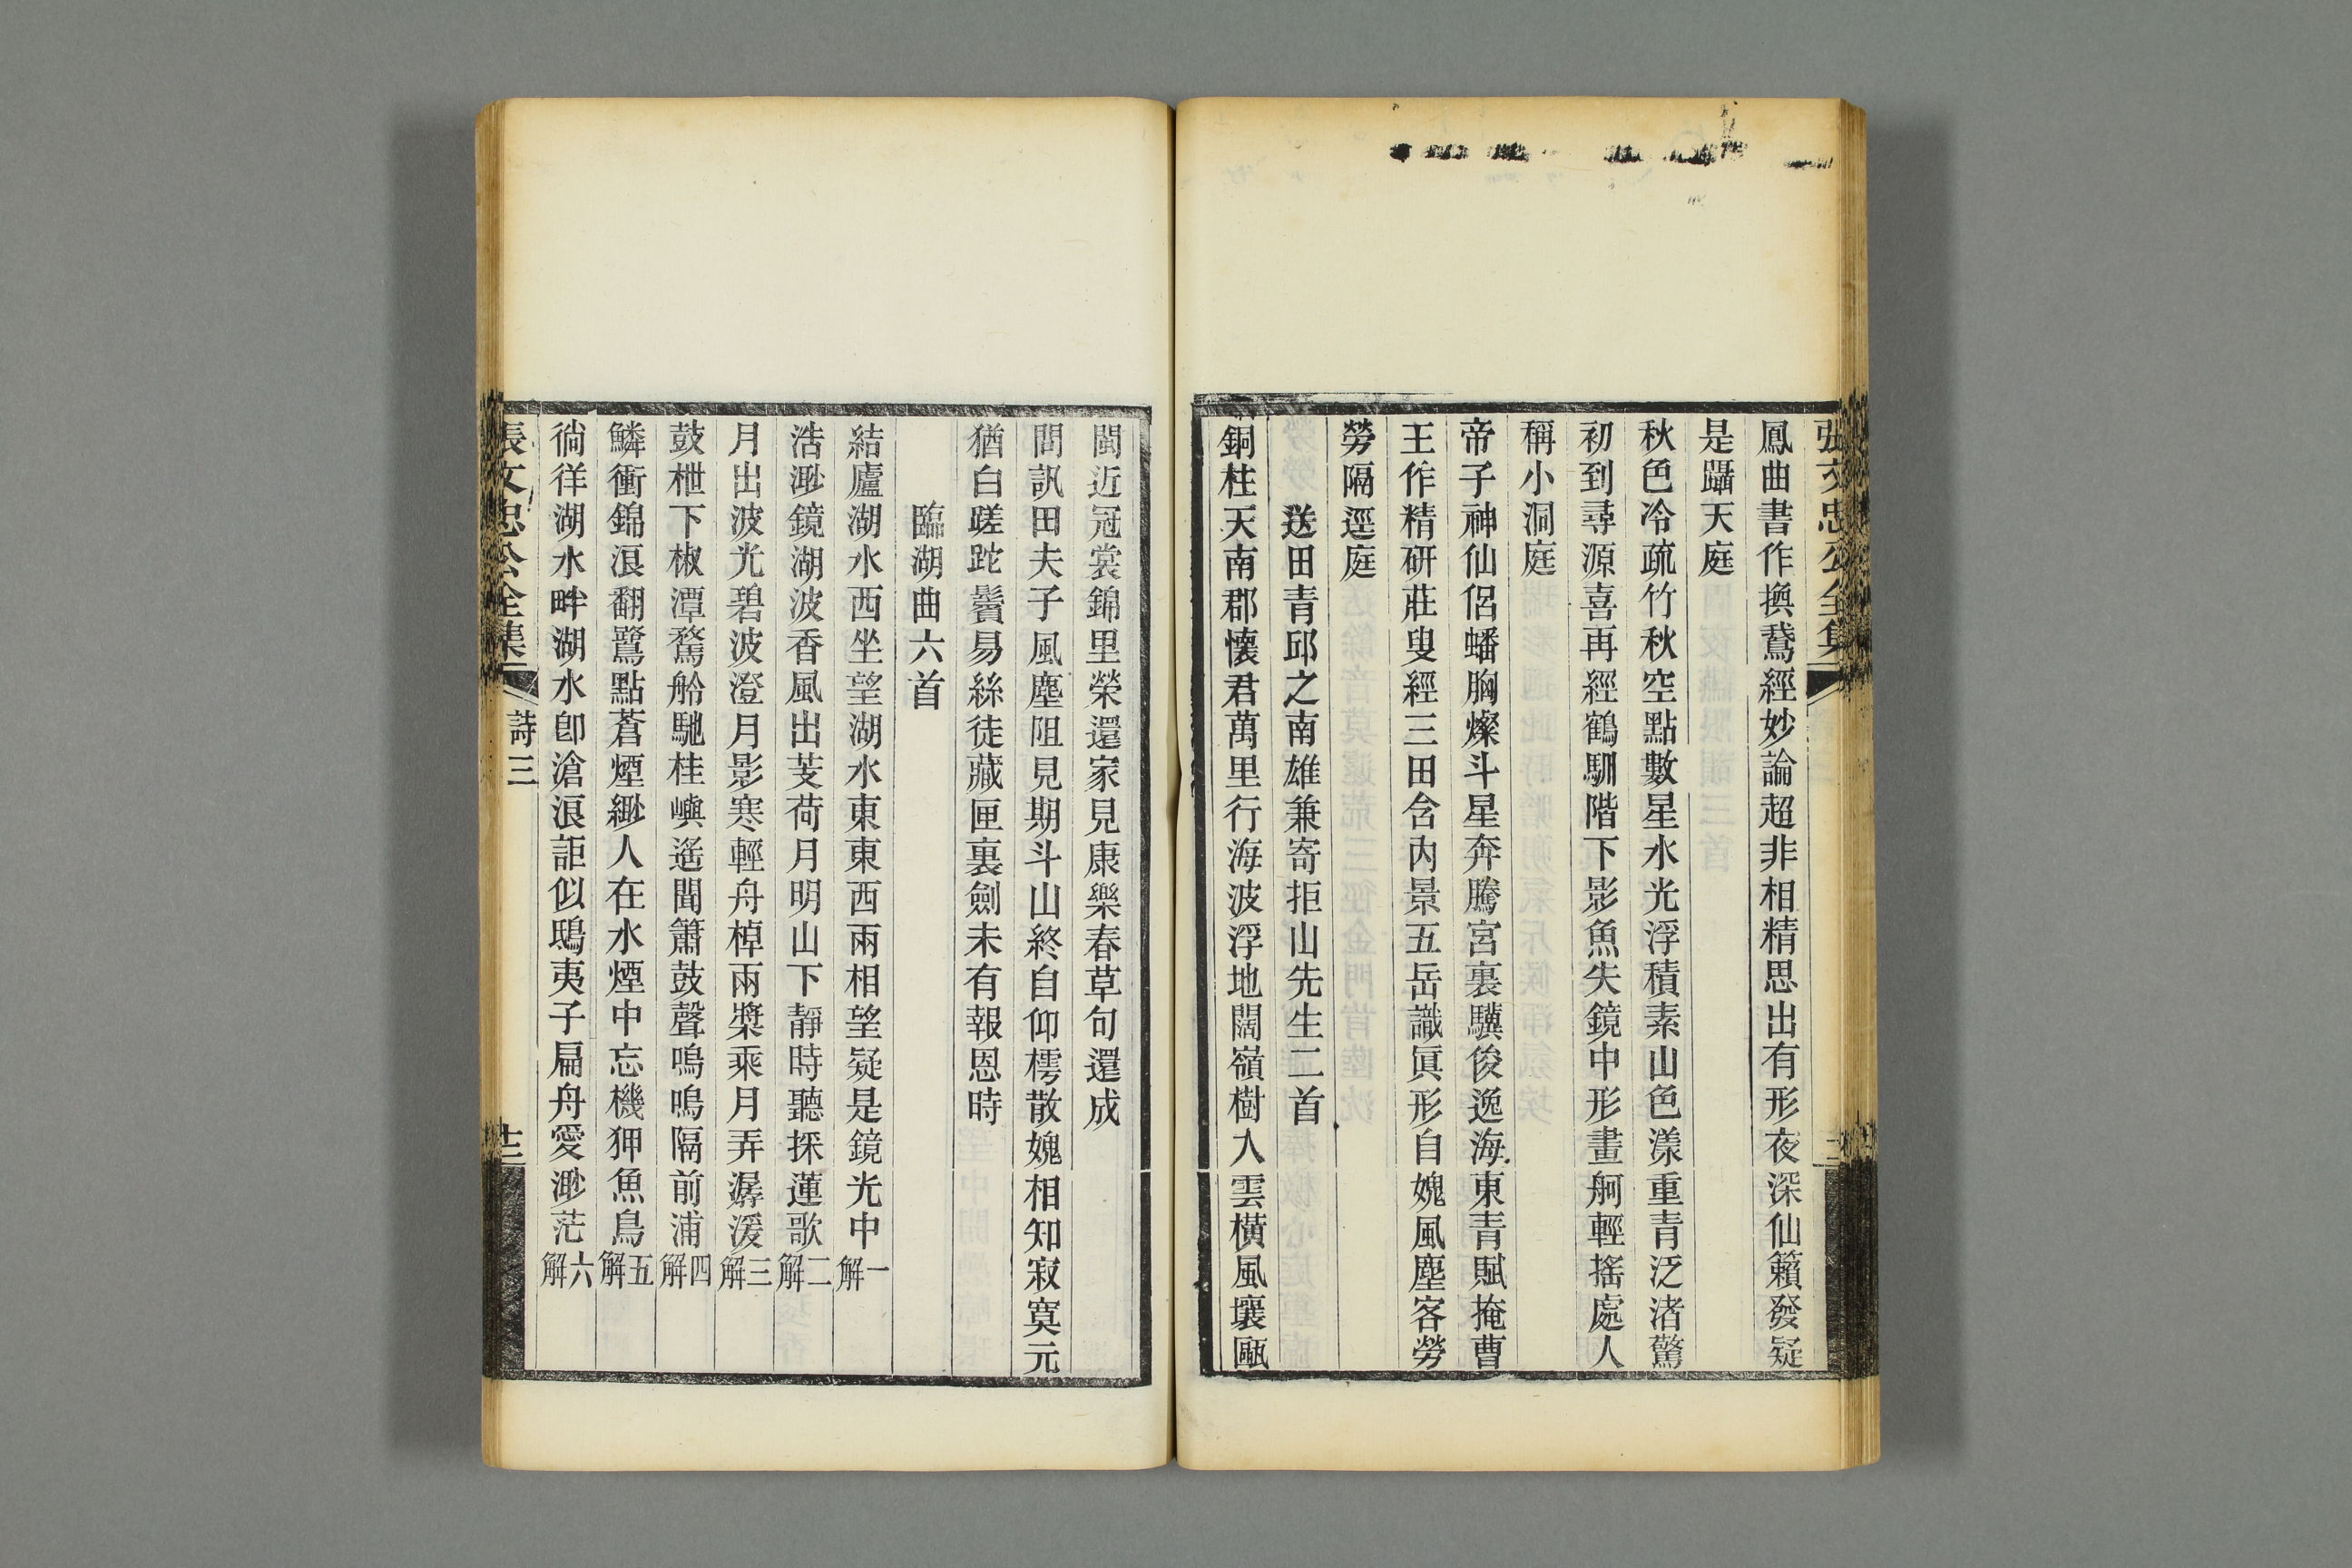 張文忠公全集
鳳曲書作換鵞經妙論超非相精思出有形夜深仙籟發疑
是躡天庭
秋色冷疏竹秋空點數星水光浮積素山色漾重青泛渚驚
初到尋源喜再經鶴馴階下影魚失鏡中形畫舸輕搖處人
稱小洞庭
帝子神仙侶蟠胸燦斗星奔騰宮裏驥俊逸海東青賦掩曹
王作精研莊叟經三田含內景五岳識眞形自媿風塵客勞
勞隔逕庭
送田青邱之南雄兼寄拒山先生二首
銅柱天南郡懷君萬里行海波浮地闊嶺樹入雲橫風壤甌
閩近冠裳錦里榮還家見康樂春草句還成
問訊田夫子風塵阻見期斗山終自仰樗散媿相知寂寞元
猶白蹉跎鬢易絲徒藏匣裏劍未有報恩時
臨湖曲六首
結廬湖水西坐望湖水東東西兩相望疑是鏡光中一解
浩渺鏡湖波香風出芰荷月明山下靜時聽採蓮歌二解
月出波光碧波澄月影寒輕舟棹兩槳乘月弄潺湲三解
鼓枻下椒潭騖舲馳桂嶼遙聞簫鼓聲嗚嗚隔前浦四解
鱗衝錦浪翻鷺點蒼煙緲人在水煙中忘機狎魚鳥五解
徜徉湖水畔湖水卽滄浪詎似鴟夷子扁舟愛渺茫六解
張文忠公全集 詩三 十二